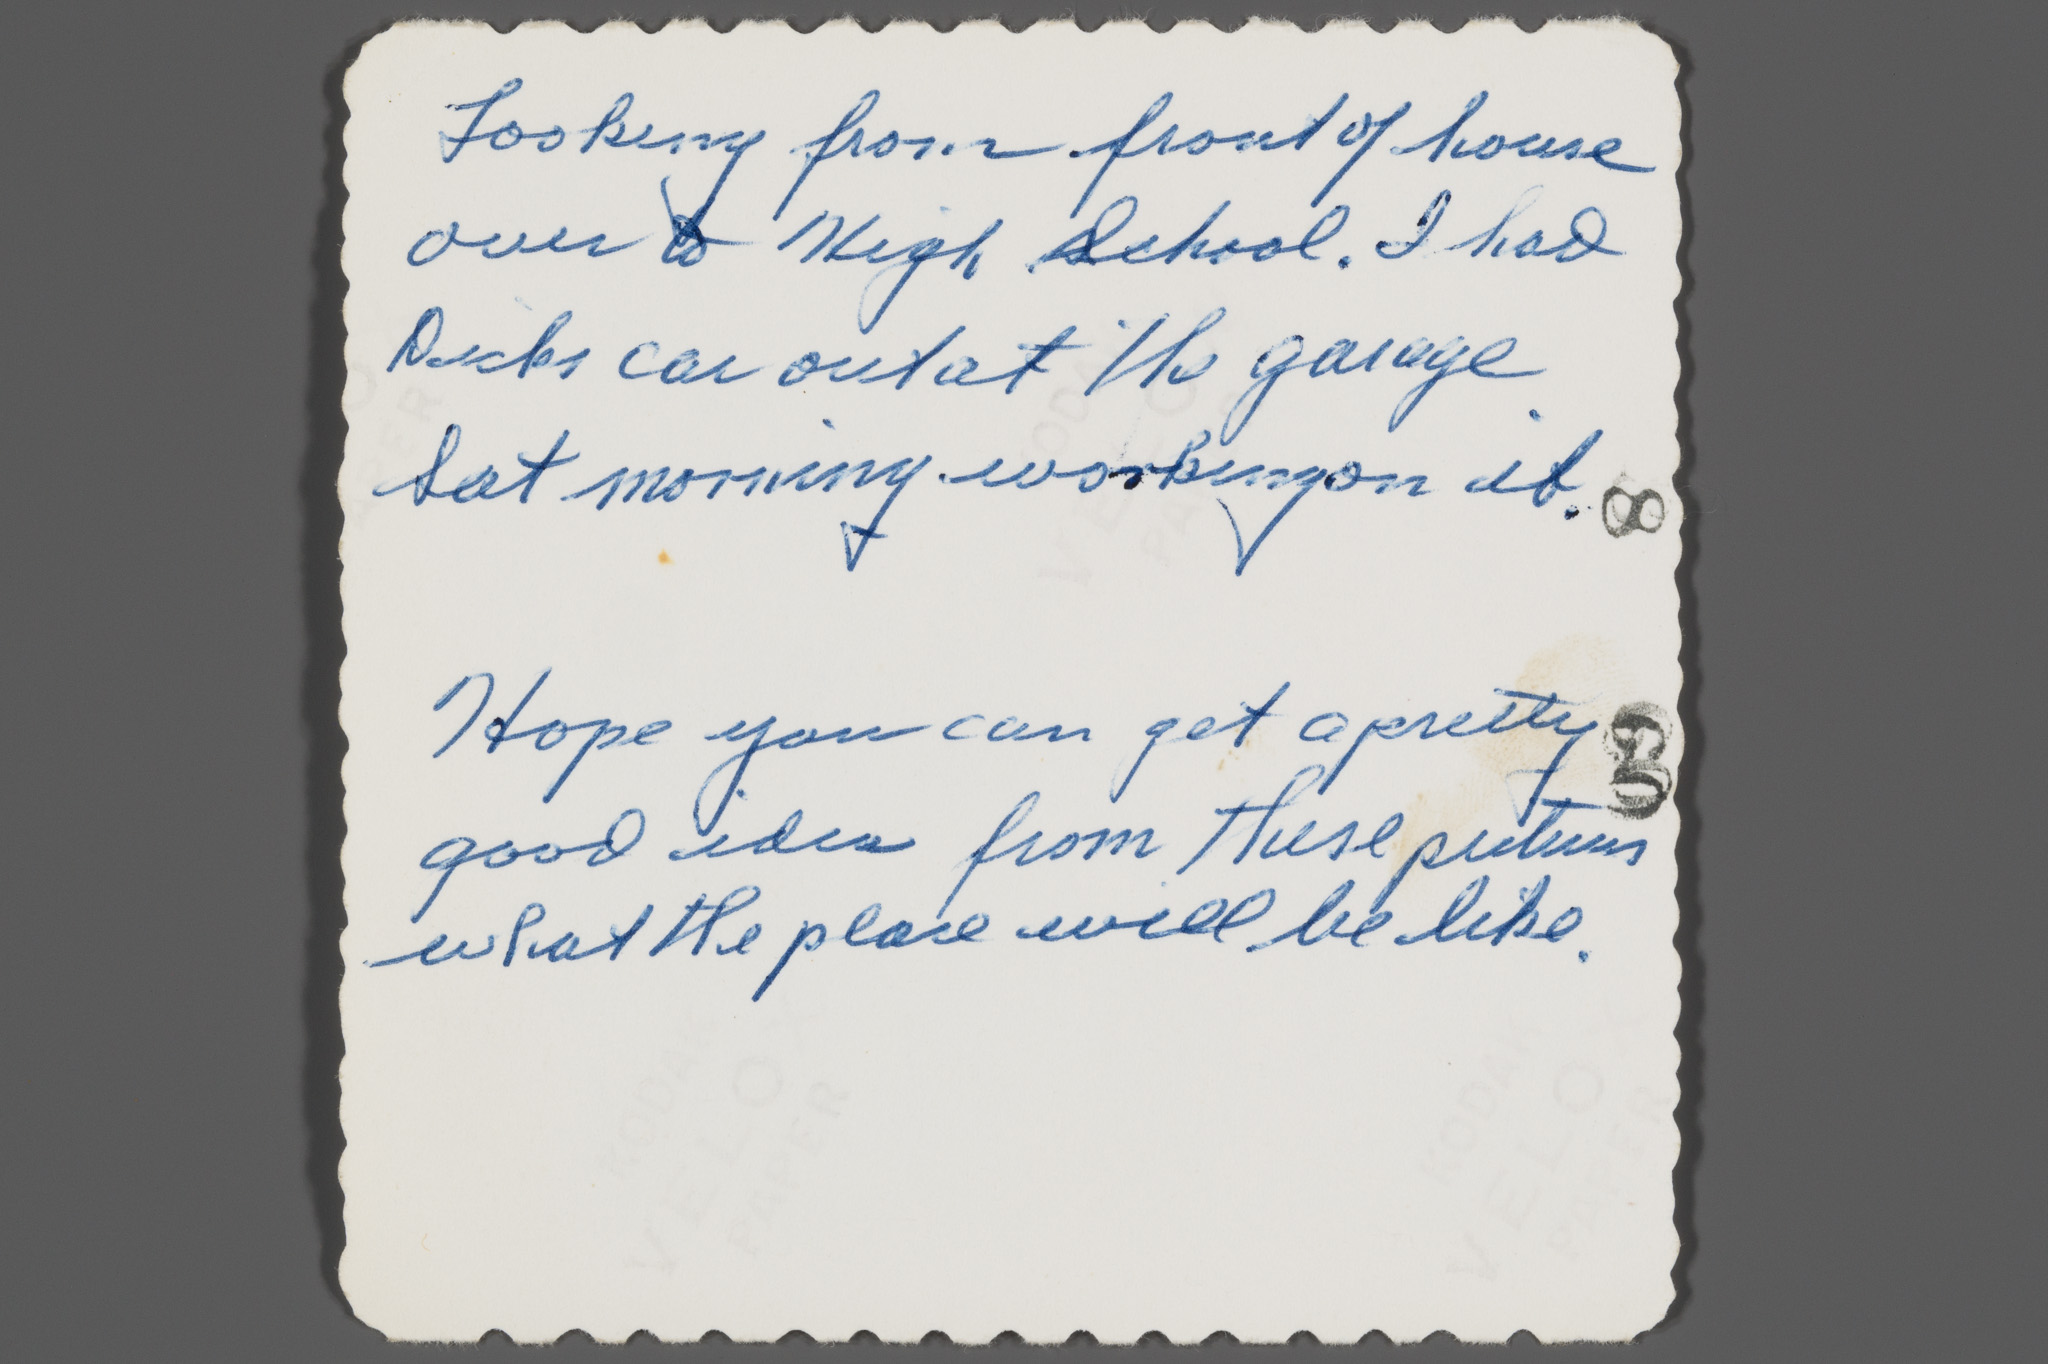 Looking from front of house
over to High School. I had
Dicks car out at the garage
Sat morning working on it.
8
Hope you can get a pretty
good idea from these pictures
what the place will be like.
KODAK
VELOX
PAPER
KODAK
VELOX
PAPER
KODAK
VELOX
PAPER